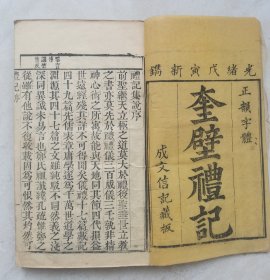 光緒戊寅新鐫
正韻字體
奎壁禮記
成文信記藏板
禮記集說序
前聖繼天立極之道莫大於禮後聖垂世立教
之書亦莫先於禮禮儀三百威儀三千孰非精
神心術之所寓故能與天地同其節四代損益
世遠經殘其詳不可得聞矣儀禮十七篇戴記
四十九篇先儒表章庸學遂為千萬世道學之
淵源其四十七篇之文雖純駁不同然義之淺
深同異誠未易言也鄭氏祖讖緯孔疏惟鄭之
從雖有他說不復收載固為可恨然其灼然可